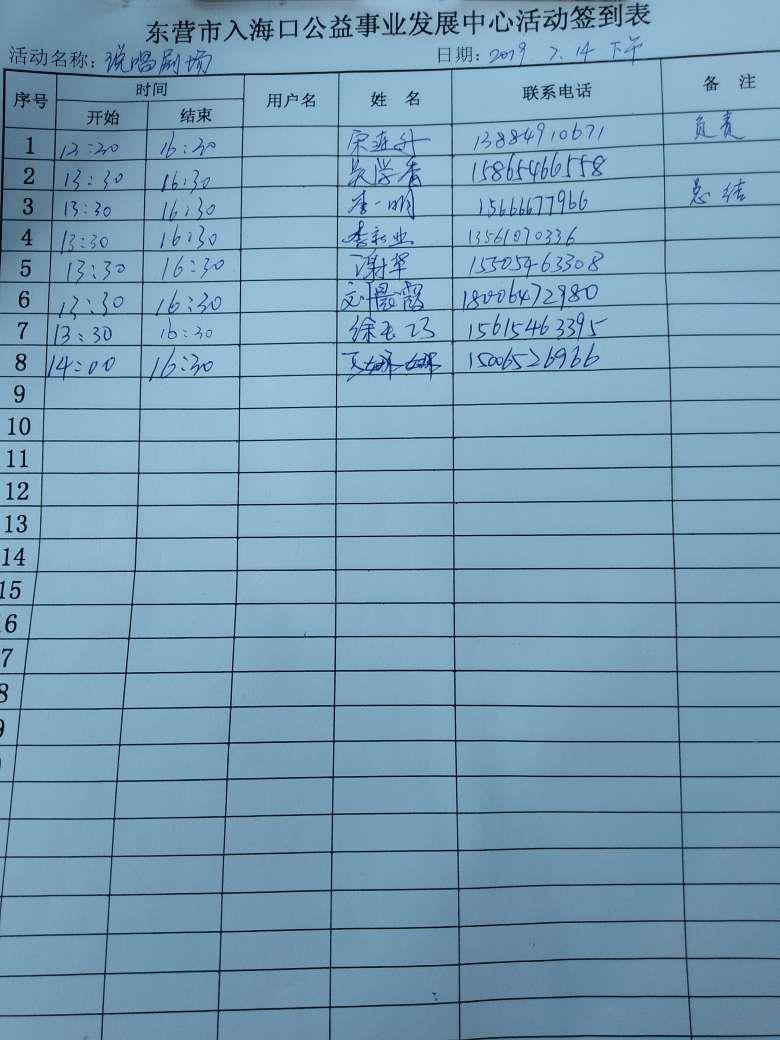 东营市入海口公益事业发展中心活动签到表
活动名称：说唱剧场 日期：2019 7.14 下午
序号 时间 用户名 姓名 联系电话 备注
开始 结束
1 13:30 16:30 13884910671 负责
2 13:30 16:30 吴学香 15865466558
3 13:30 16:30 李一明 15666677966 总结
4 13:30 16:30 李新业 13561070336
5 13:30 16:30 谢军 15505463308
6 13:30 16:30 刘晨霞 18006472980
7 13:30 16:30 徐玉巧 15615463395
8 14:00 16:30 15065226966
9
10
11
12
13
14
15
6
7
8
9